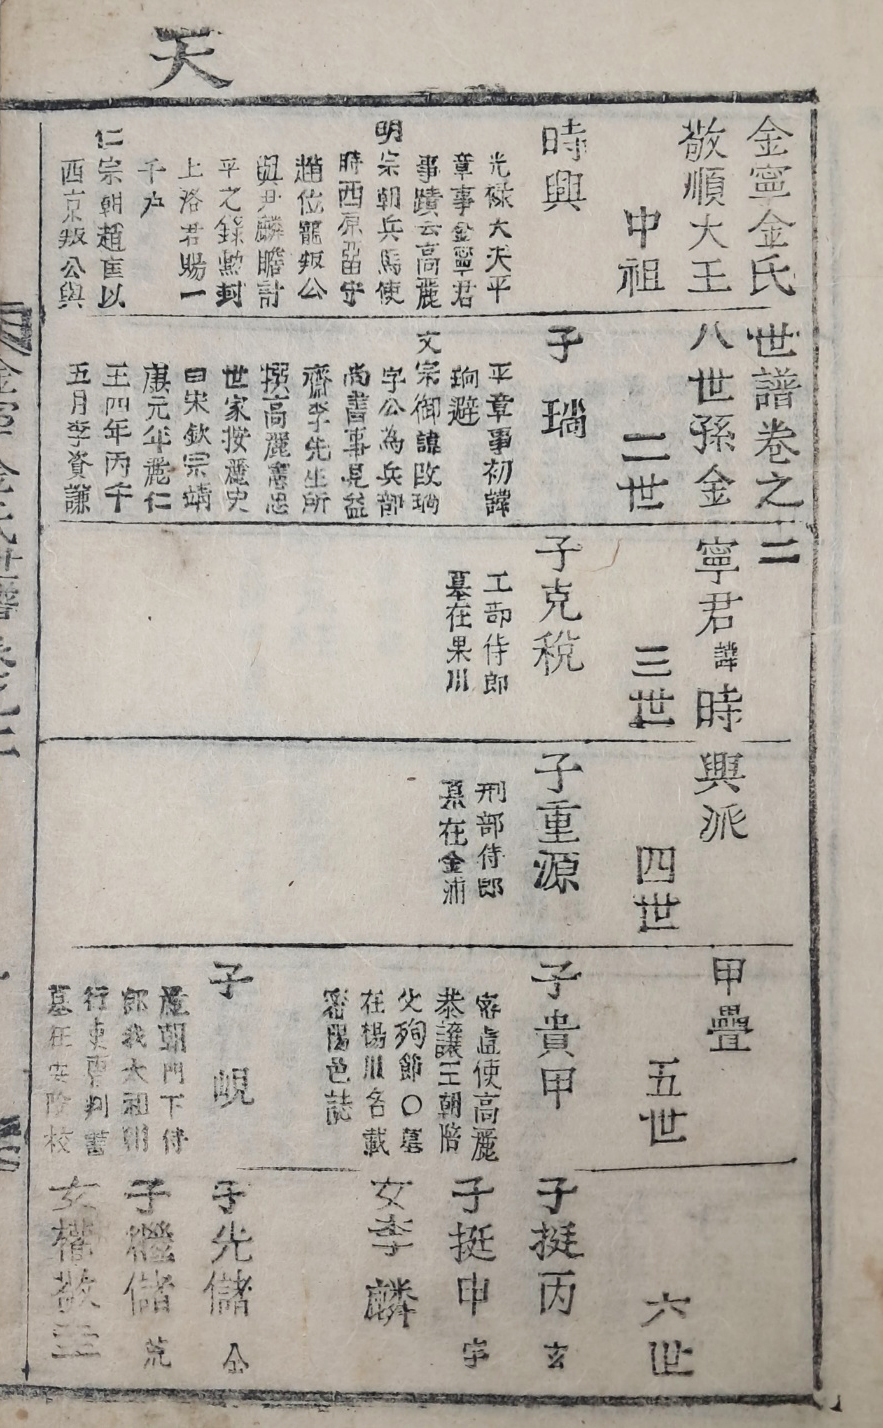 天
金寧金氏世譜卷之二
敬順大王八世孫金寧君諱時興派
甲疊
中祖
二世
三世
四世
五世
六世
時興
光祿大夫平
章事金寧君
事蹟云高麗
明宗朝兵馬使
時西原留守
趙位寵叛公
與尹麟瞻討
平之錄勲封
上洛君賜一
千戶
仁宗朝趙匡以
西京叛公與
子 瑙
平章事初諱
珦避
文宗御諱改瑙
字公為兵部
尚書事見益
齋李先生所
撰高麗憲忠
世家按麗史
曰宋欽宗靖
康元年麗仁
王四年丙午
五月李資謙
子克稅
工部侍郎
墓在果川
子重源
刑部侍郎
墓在金浦
子貴甲
密直使高麗
恭讓王朝陪
父殉節〇墓
在楊川名載
密陽邑誌
子 峴
麗朝門下侍
郎我太祖朝
行吏曹判書
墓在安陰校
子挺丙 玄
子挺申 字
女李麟
子先儲 仝
子繼儲 荒
女權敬
金寧金氏世譜卷之二